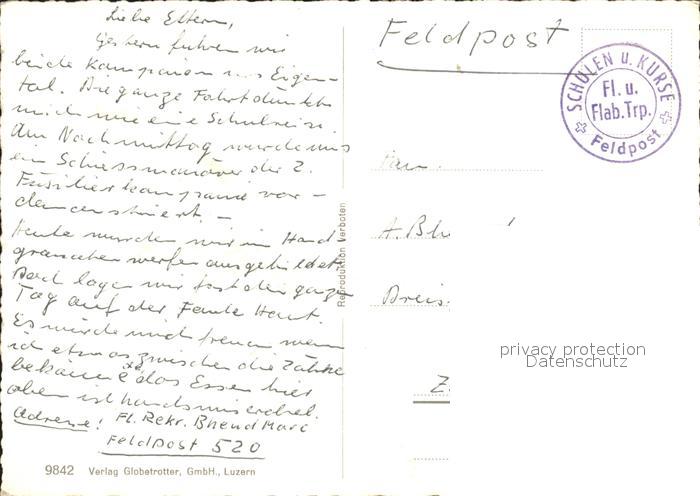 Liebe Eltern,
Gestern fuhren wir
beide Kompanien ins Eigen-
tal. Die ganze Fahrt dünkte
mich wie eine Schulreise.
Am Nachmittag wurde uns
ein Schiessmanöver der 2.
Füsilierkompanie vor-
demonstriert. -
Heute wurden wir im Hand-
granaten werfen ausgebildet.
Doch lagen wir fast den ganzen
Tag auf der Faulen Haut.
Es würde mich freuen wenn
ich etwas zwischen die Zähne
bekäme das Essen hier
oben ist handsmiserabel.
Adresse: Fl. Rekr. Bhend Marc
Feldpost 520
9842 Verlag Globetrotter, GmbH., Luzern
Reproduktion verboten
Feldpost
SCHULEN U. KURSE
Fl. u.
Flab. Trp.
Feldpost
A. Bh
Breis.
Z.
privacy protection
Datenschutz